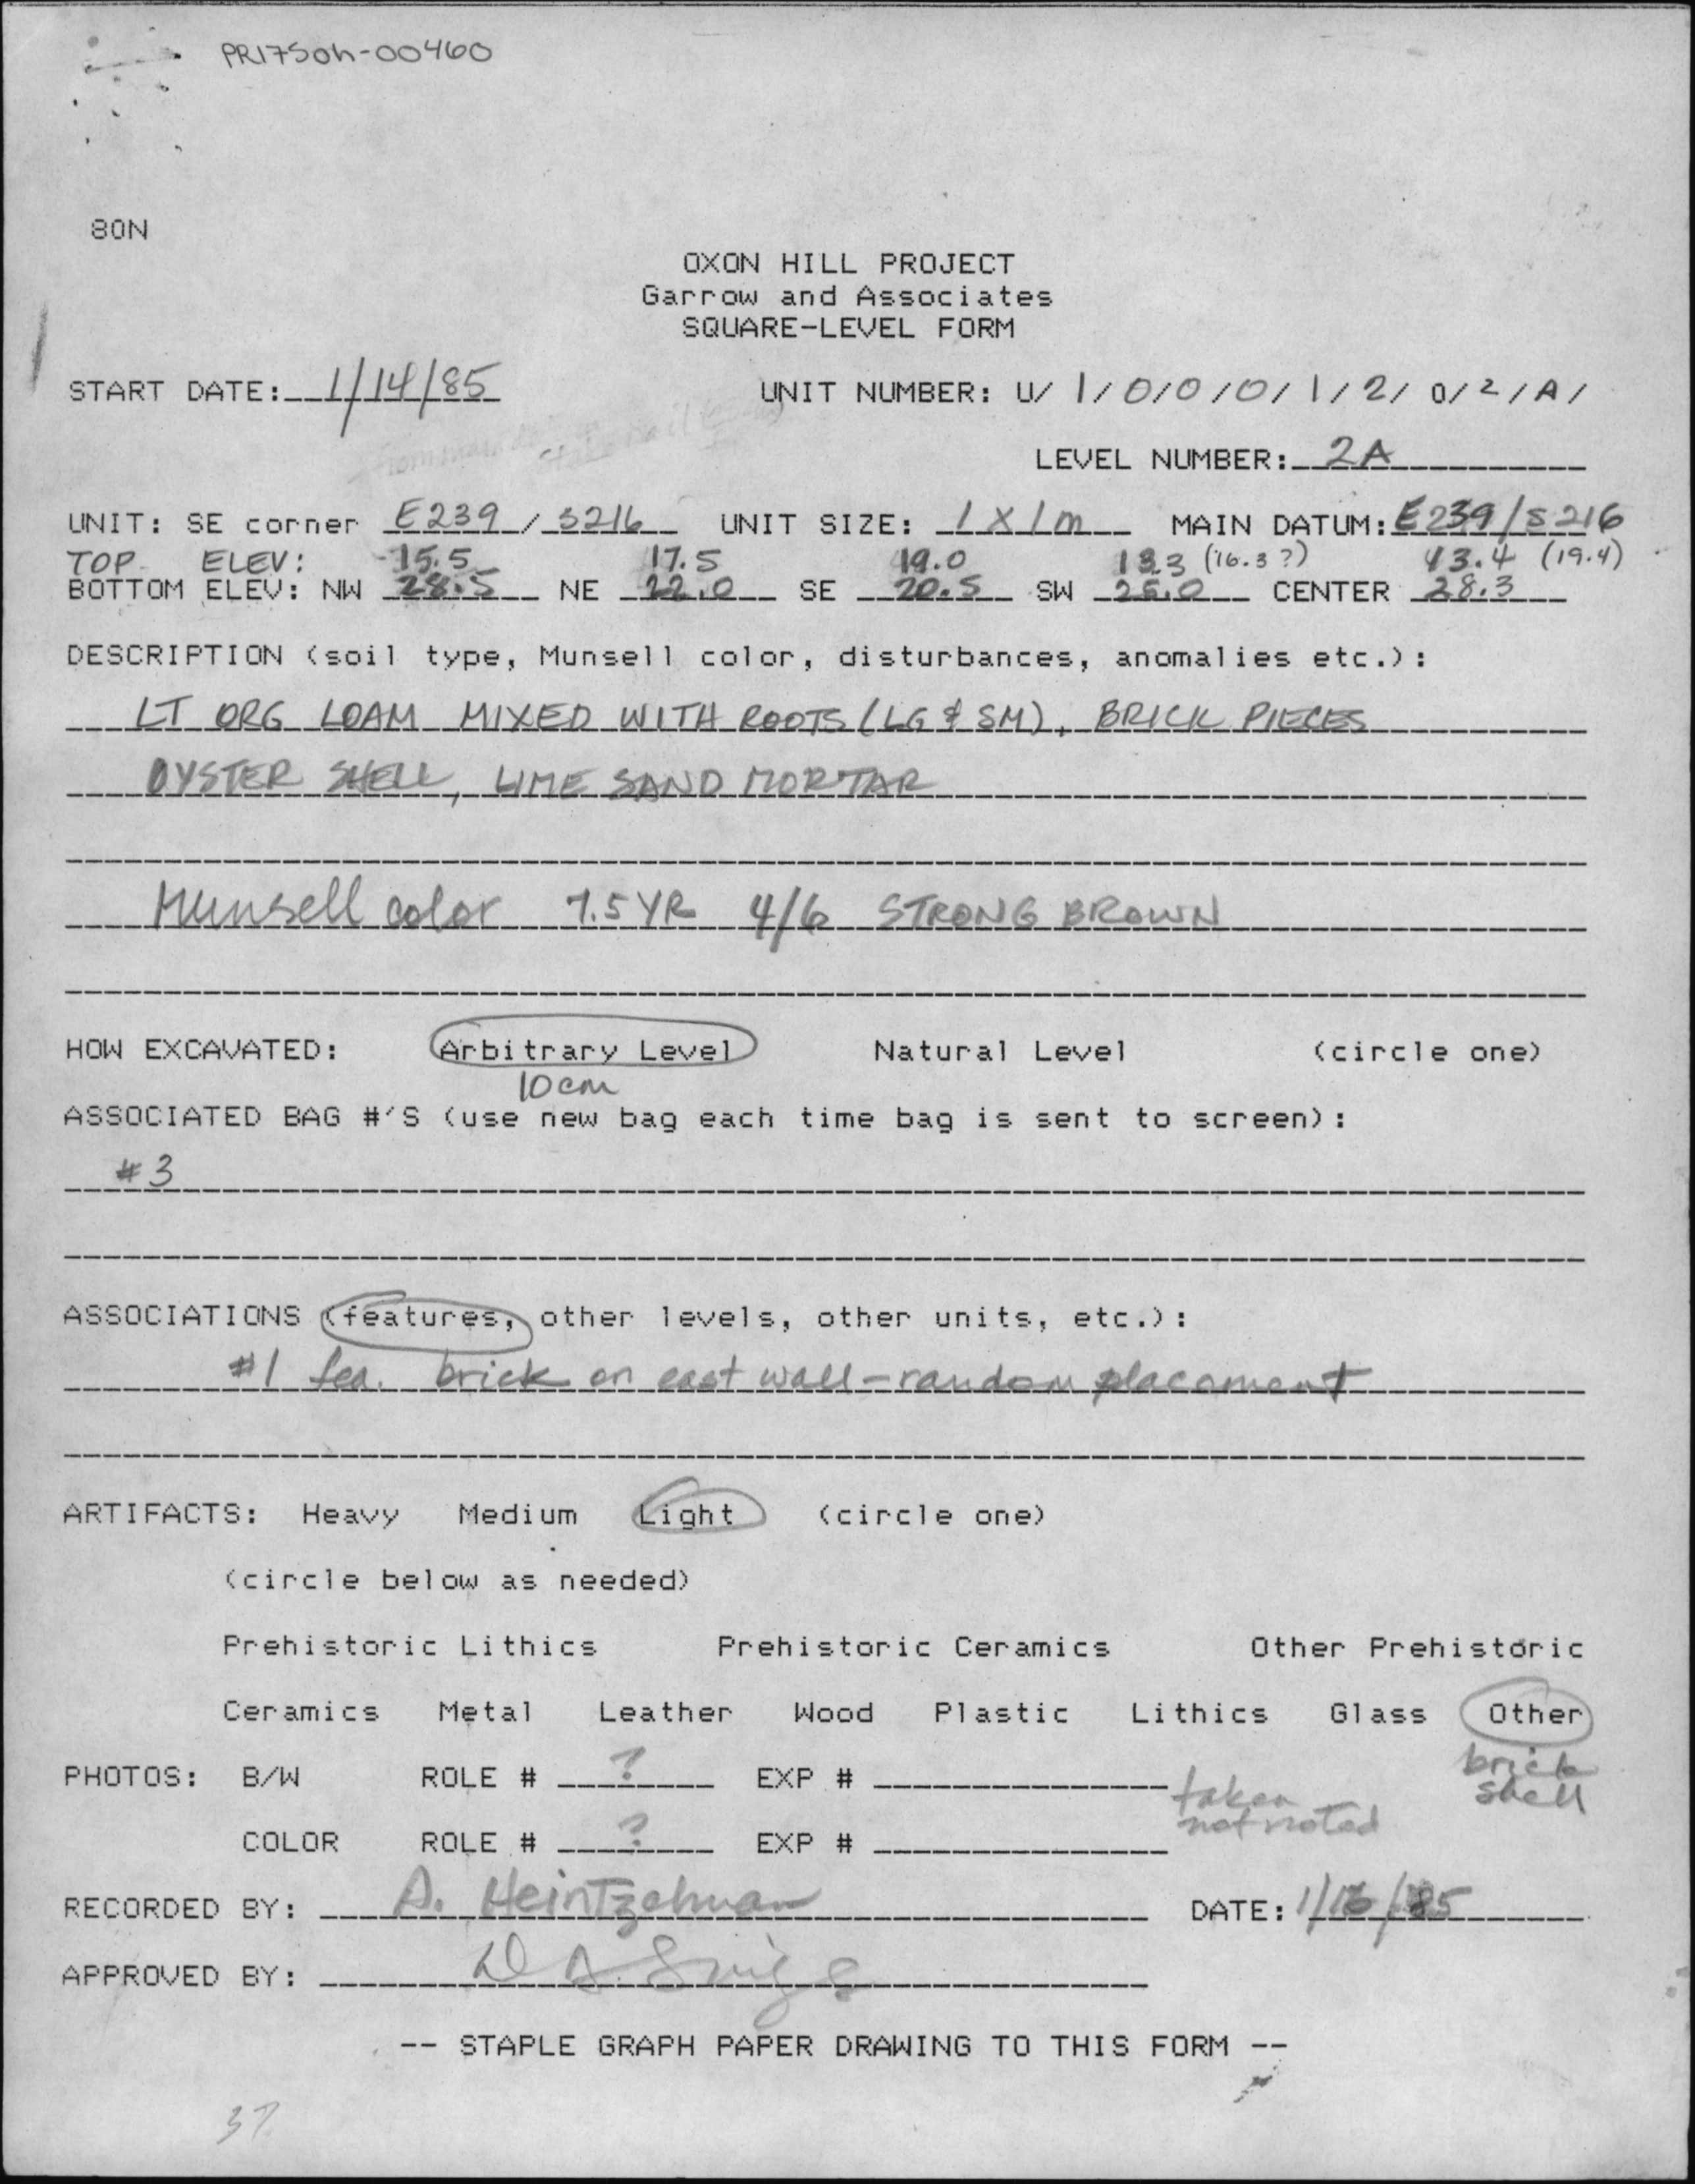 PR175oh-00460
80N
OXON HILL PROJECT
Garrow and Associates
SQUARE-LEVEL FORM
START DATE: 1/14/85 UNIT NUMBER: U/ 1/0/0/0/1/2/0/2/A/
LEVEL NUMBER: 2A
UNIT: SE corner E239 / S216 UNIT SIZE: 1 X 1 m MAIN DATUM: E239/S216
TOP ELEV: 15.5 17.5 19.0 13.3 (16.3?) 13.4 (19.4)
BOTTOM ELEV: NW 28.5 NE 22.0 SE 20.5 SW 25.0 CENTER 28.3
DESCRIPTION (soil type, Munsell color, disturbances, anomalies etc.):
LT ORG LOAM MIXED WITH ROOTS (LG & SM), BRICK PIECES
OYSTER SHELL, LIME SAND MORTAR
Munsell color 7.5 YR 4/6 STRONG BROWN
HOW EXCAVATED: Arbitrary Level Natural Level (circle one)
10cm
ASSOCIATED BAG #'S (use new bag each time bag is sent to screen):
#3
ASSOCIATIONS (features, other levels, other units, etc.):
#1 fea. brick on east wall - random placement
ARTIFACTS: Heavy Medium Light (circle one)
(circle below as needed)
Prehistoric Lithics Prehistoric Ceramics Other Prehistoric
Ceramics Metal Leather Wood Plastic Lithics Glass Other
brick
shell
PHOTOS: B/W ROLE # ? EXP #
taken
not noted
COLOR ROLE # ? EXP #
RECORDED BY: A. Heintzelman DATE: 1/16/85
APPROVED BY:
-- STAPLE GRAPH PAPER DRAWING TO THIS FORM --
37